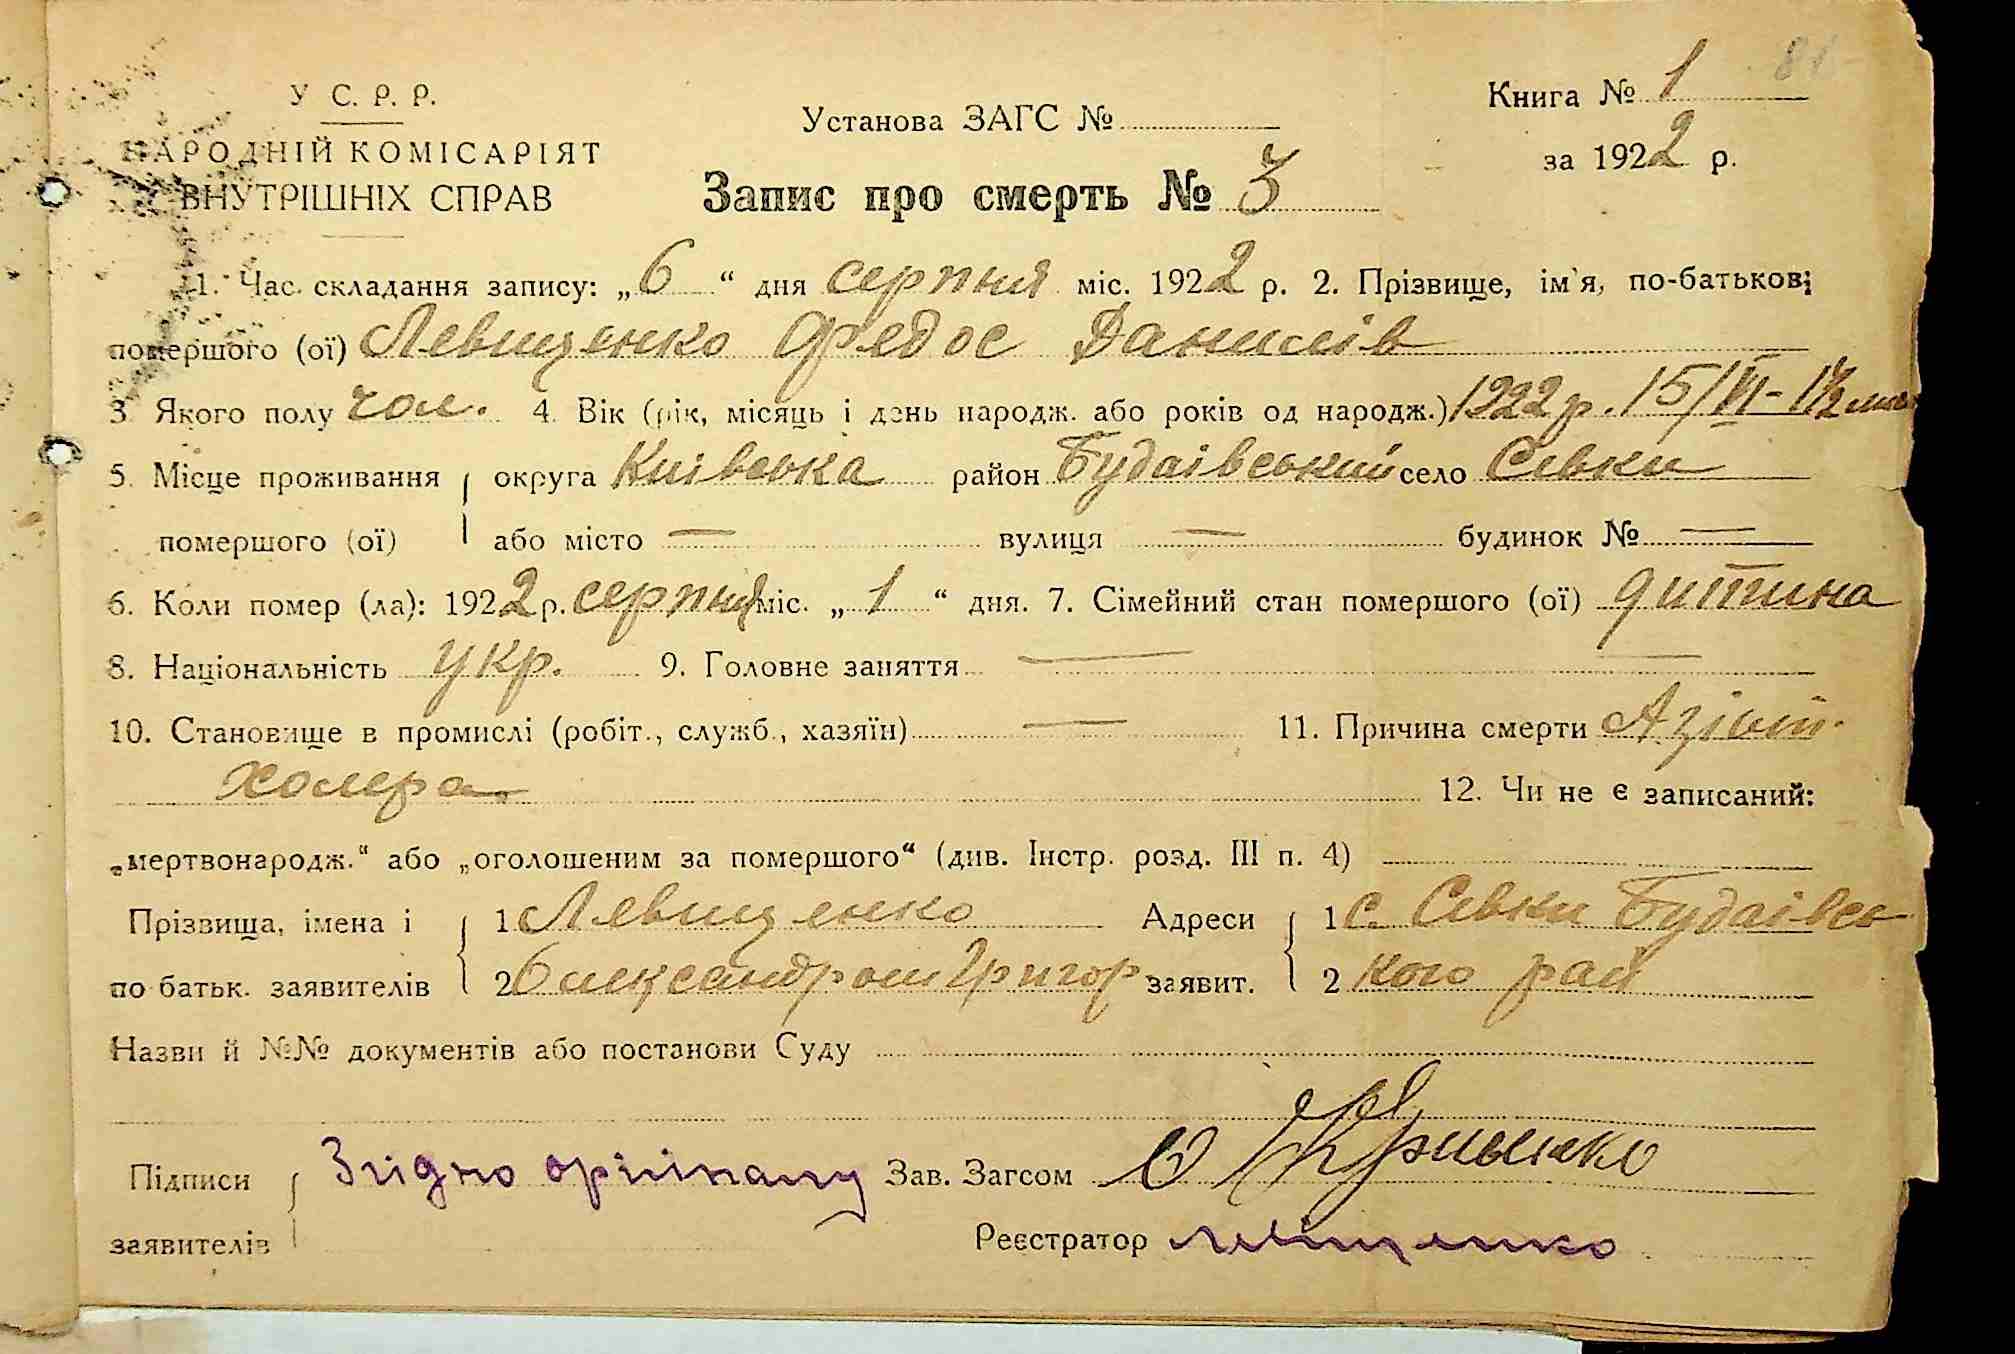 81
У С. Р. Р.
Книга № 1
Установа ЗАГС №
НАРОДНІЙ КОМІСАРІЯТ
за 1922 р.
ВНУТРІШНІХ СПРАВ
Запис про смерть № 3
1. Час складання запису: „6“ дня серпня міс. 1922 р. 2. Прізвище, ім'я, по-батькові
помершого (ої) Левищенко Федос Данилів
3 Якого полу чол. 4. Вік (рік, місяць і день народж. або років од народж.) 1922 р. 15/VI - 1½ міс
5. Місце проживання округа Київська район Будаівський село Сівки
помершого (ої) або місто — вулиця — будинок № —
6. Коли помер (ла): 1922 р. серпня міс. „1“ дня. 7. Сімейний стан помершого (ої) дитина
8. Національність укр. 9. Головне заняття —
10. Становище в промислі (робіт., служб., хазяїн) — 11. Причина смерти Азіат.
холера. 12. Чи не є записаний:
„мертвонародж.“ або „оголошеним за помершого“ (див. Інстр. розд. III п. 4)
Прізвища, імена і 1 Левищенко Адреси 1 с. Сівки Будаівсь
по батьк. заявителів 2 Олександром Григор заявит. 2 кого рай
Назви й №№ документів або постанови Суду
Підписи Згідно оригіналу Зав. Загсом
заявителів Реєстратор Левіщенко